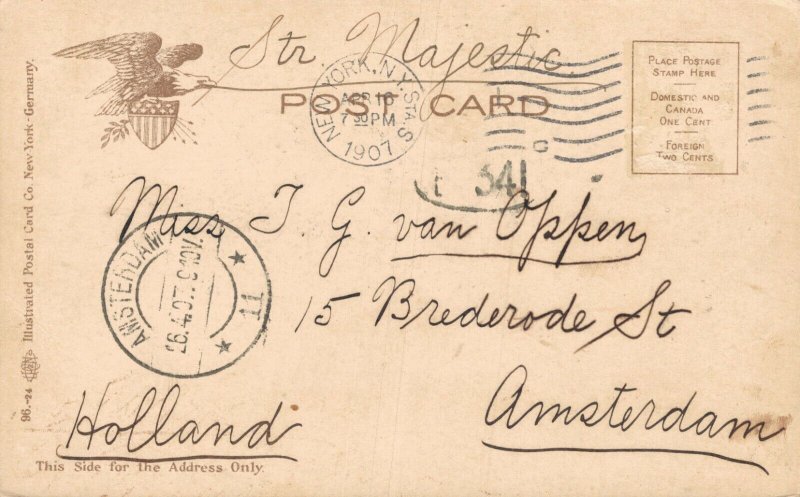 Str. Majestic.
POST CARD
NEW YORK, N.Y. STA. S
APR 16
7 30 PM
1907
PLACE POSTAGE
STAMP HERE
DOMESTIC AND
CANADA
ONE CENT
FOREIGN
TWO CENTS
341
Miss J. G. van Oppen,
15 Brederode St
Amsterdam
Holland
AMSTERDAM
26.4.07. 9-10V.
11
This Side for the Address Only.
96.-24 Illustrated Postal Card Co. New-York-Germany.